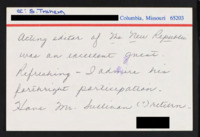 cc: S. Trohein
Columbia, Missouri 65203
Acting editor of The New Republic
was an excellent guest.
Refreshing - I admire his
forthright participation.
Have Mr. Sullivan (?) return.